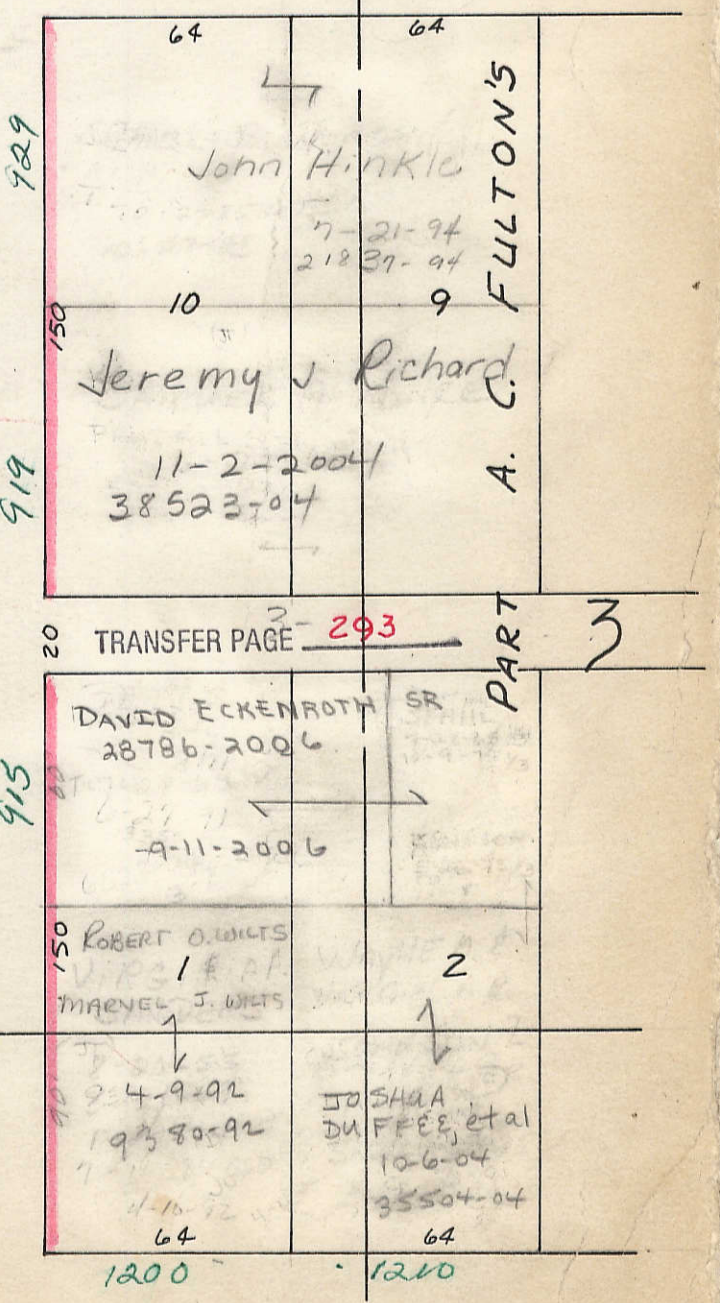 64
64
929
John Hinkle
7-21-94
21837-94
10
9
150
Jeremy J Richard
919
11-2-2004
38523-04
PART A. C. FULTON'S
20
TRANSFER PAGE 3- 293
3
DAVID ECKENROTH SR
28786-2006
915
60
9-11-2006
150
ROBERT O. WILTS
1
2
MARVEL J. WILTS
90
4-9-92
9380-92
JOSHUA
DUFFEE, et al
10-6-04
35504-04
64
64
1200
1210